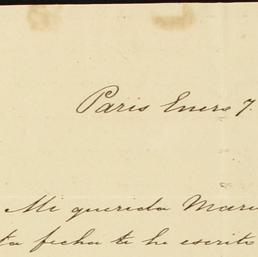 Paris Enero 7
Mi querida
ta fecha te he escrito